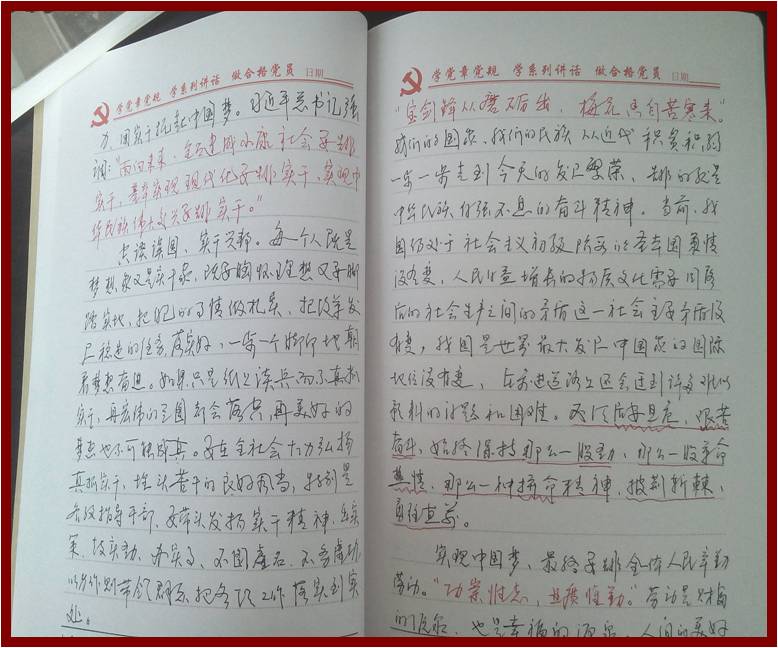 学党章党规 学系列讲话 做合格党员 日期
力、用实干托起中国梦。习近平总书记强
调："面向未来，全面建成小康社会要靠
实干，基本实现现代化要靠实干，实现中
华民族伟大复兴要靠实干。"
空谈误国，实干兴邦。每一个人既是
梦想家又是实干家，既要胸怀理想又要脚
踏实地，把自己的事情做扎实，把改革发
展稳定的任务落实好，一步一个脚印地朝
着梦想奋进。如果只是纸上谈兵而不真抓
实干，再宏伟的蓝图都会落空，再美好的
梦想也不可能成真。要在全社会大力弘扬
真抓实干、埋头苦干的良好风尚，特别是
各级领导干部，要带头发扬实干精神，出实
策、鼓实劲、办实事，不图虚名，不务虚功，
以身作则带领群众把各项工作落实到实
处。
学党章党规 学系列讲话 做合格党员 日期
"宝剑锋从磨砺出，梅花香自苦寒来。"
我们的国家、我们的民族，从近代积贫积弱
一步一步走到今天的发展繁荣，靠的就是
中华民族自强不息的奋斗精神。当前，我
国仍处于社会主义初级阶段的基本国情
没有变，人民日益增长的物质文化需要同落
后的社会生产之间的矛盾这一社会主要矛盾没
有变，我国是世界最大发展中国家的国际
地位没有变，在前进道路上还会遇到许多难以
预料的问题和困难。必须居安思危，艰苦
奋斗，始终保持那么一股劲，那么一股革命
热情，那么一种拼命精神，披荆斩棘，
勇往直前。
实现中国梦，最终要靠全体人民辛勤
劳动。"功崇惟志，业广惟勤。"劳动是财富
的源泉，也是幸福的源泉。人间的美好